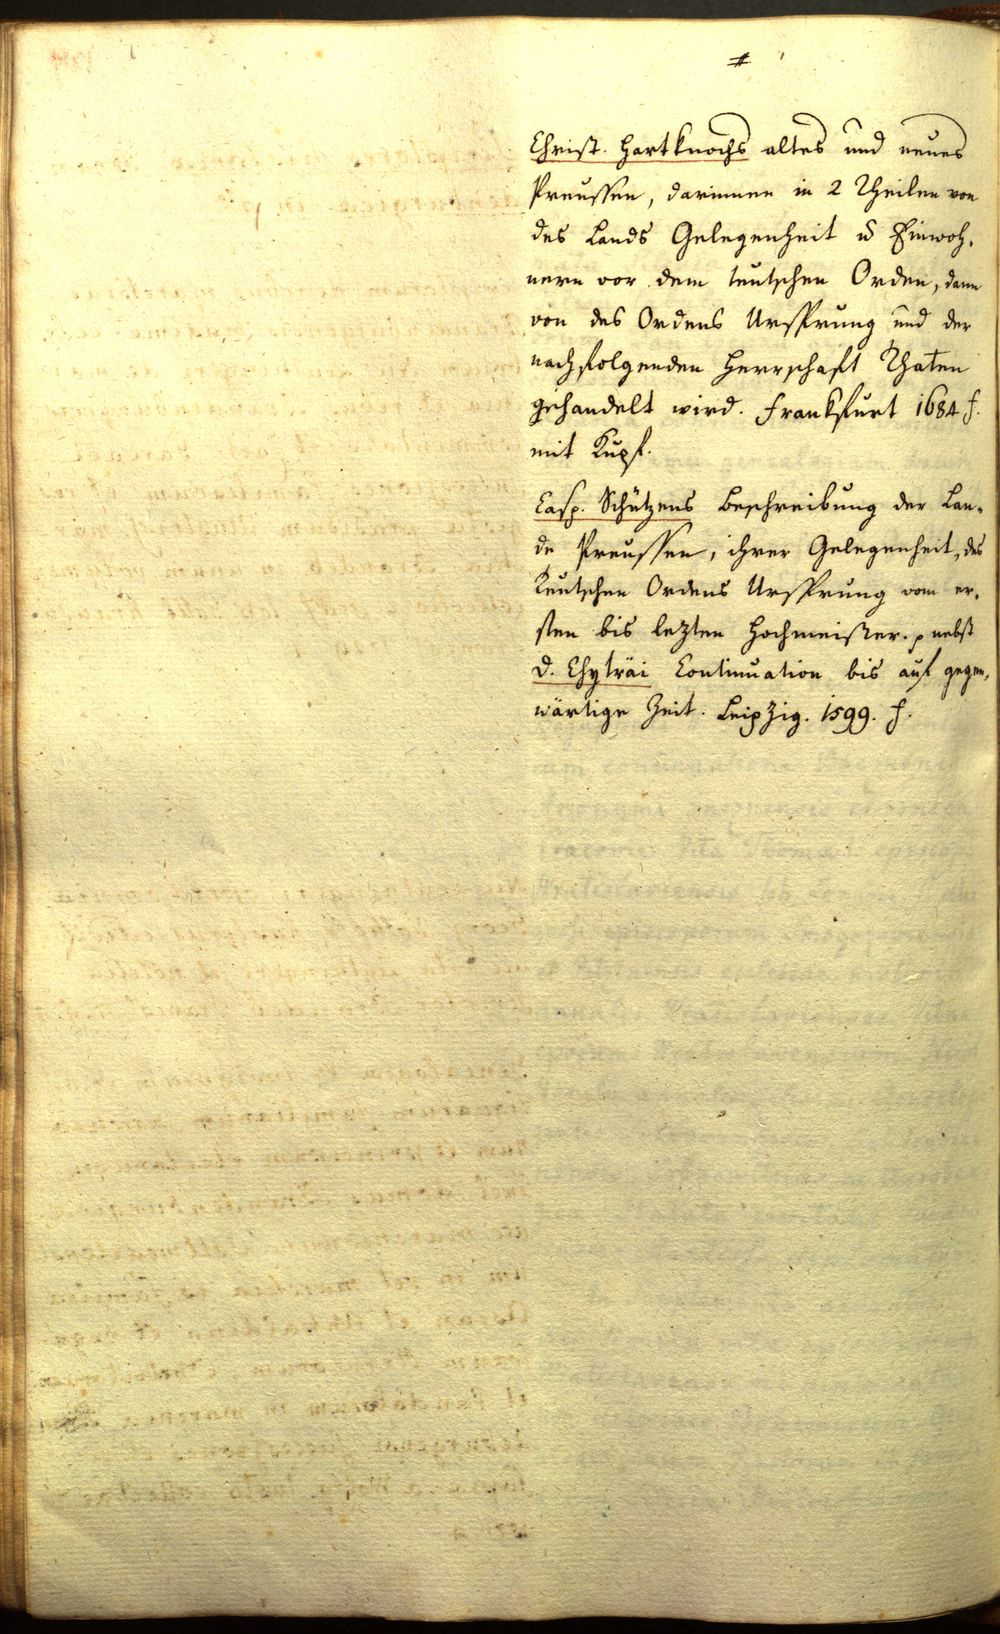 #
Christ. Hartknochs altes und neues
Preussen, darinnen in 2 Theilen von
des Lands Gelegenheit u Einwoh-
nern vor dem teutschen Orden, dann
von des Ordens Ursprung und der
nachfolgenden Herrschaft Thaten
gehandelt wird. Frankfurt 1684 f.
mit Kupf.
Casp. Schützens Beschreibung der Lan-
de Preussen, ihrer Gelegenheit, des
Teutschen Ordens Ursprung vom er-
sten bis lezten Hochmeister. p nebst
D. Chyträi Continuation bis auf gegen-
wärtige Zeit. Leipzig. 1599. f.